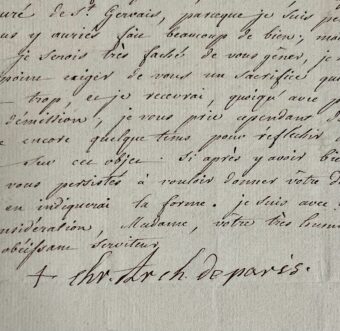 curé de St. Gervais, parceque je suis pe
us y auriés fait beaucoup de bien; mai
je serois très faché de vous gêner, je n
point exiger de vous un sacrifice qui
trop, et je recevrai, quoiqu'avec p
démission, je vous prie cependant d
e encore quelque tems pour réfléchir
sur cet objet. Si après y avoir bien
vous persistés à vouloir donner vôtre d
en indiquerai la forme. je suis avec
nsidération, Madame, vôtre très hum
obéissant serviteur
+ chr. Arch. de paris.